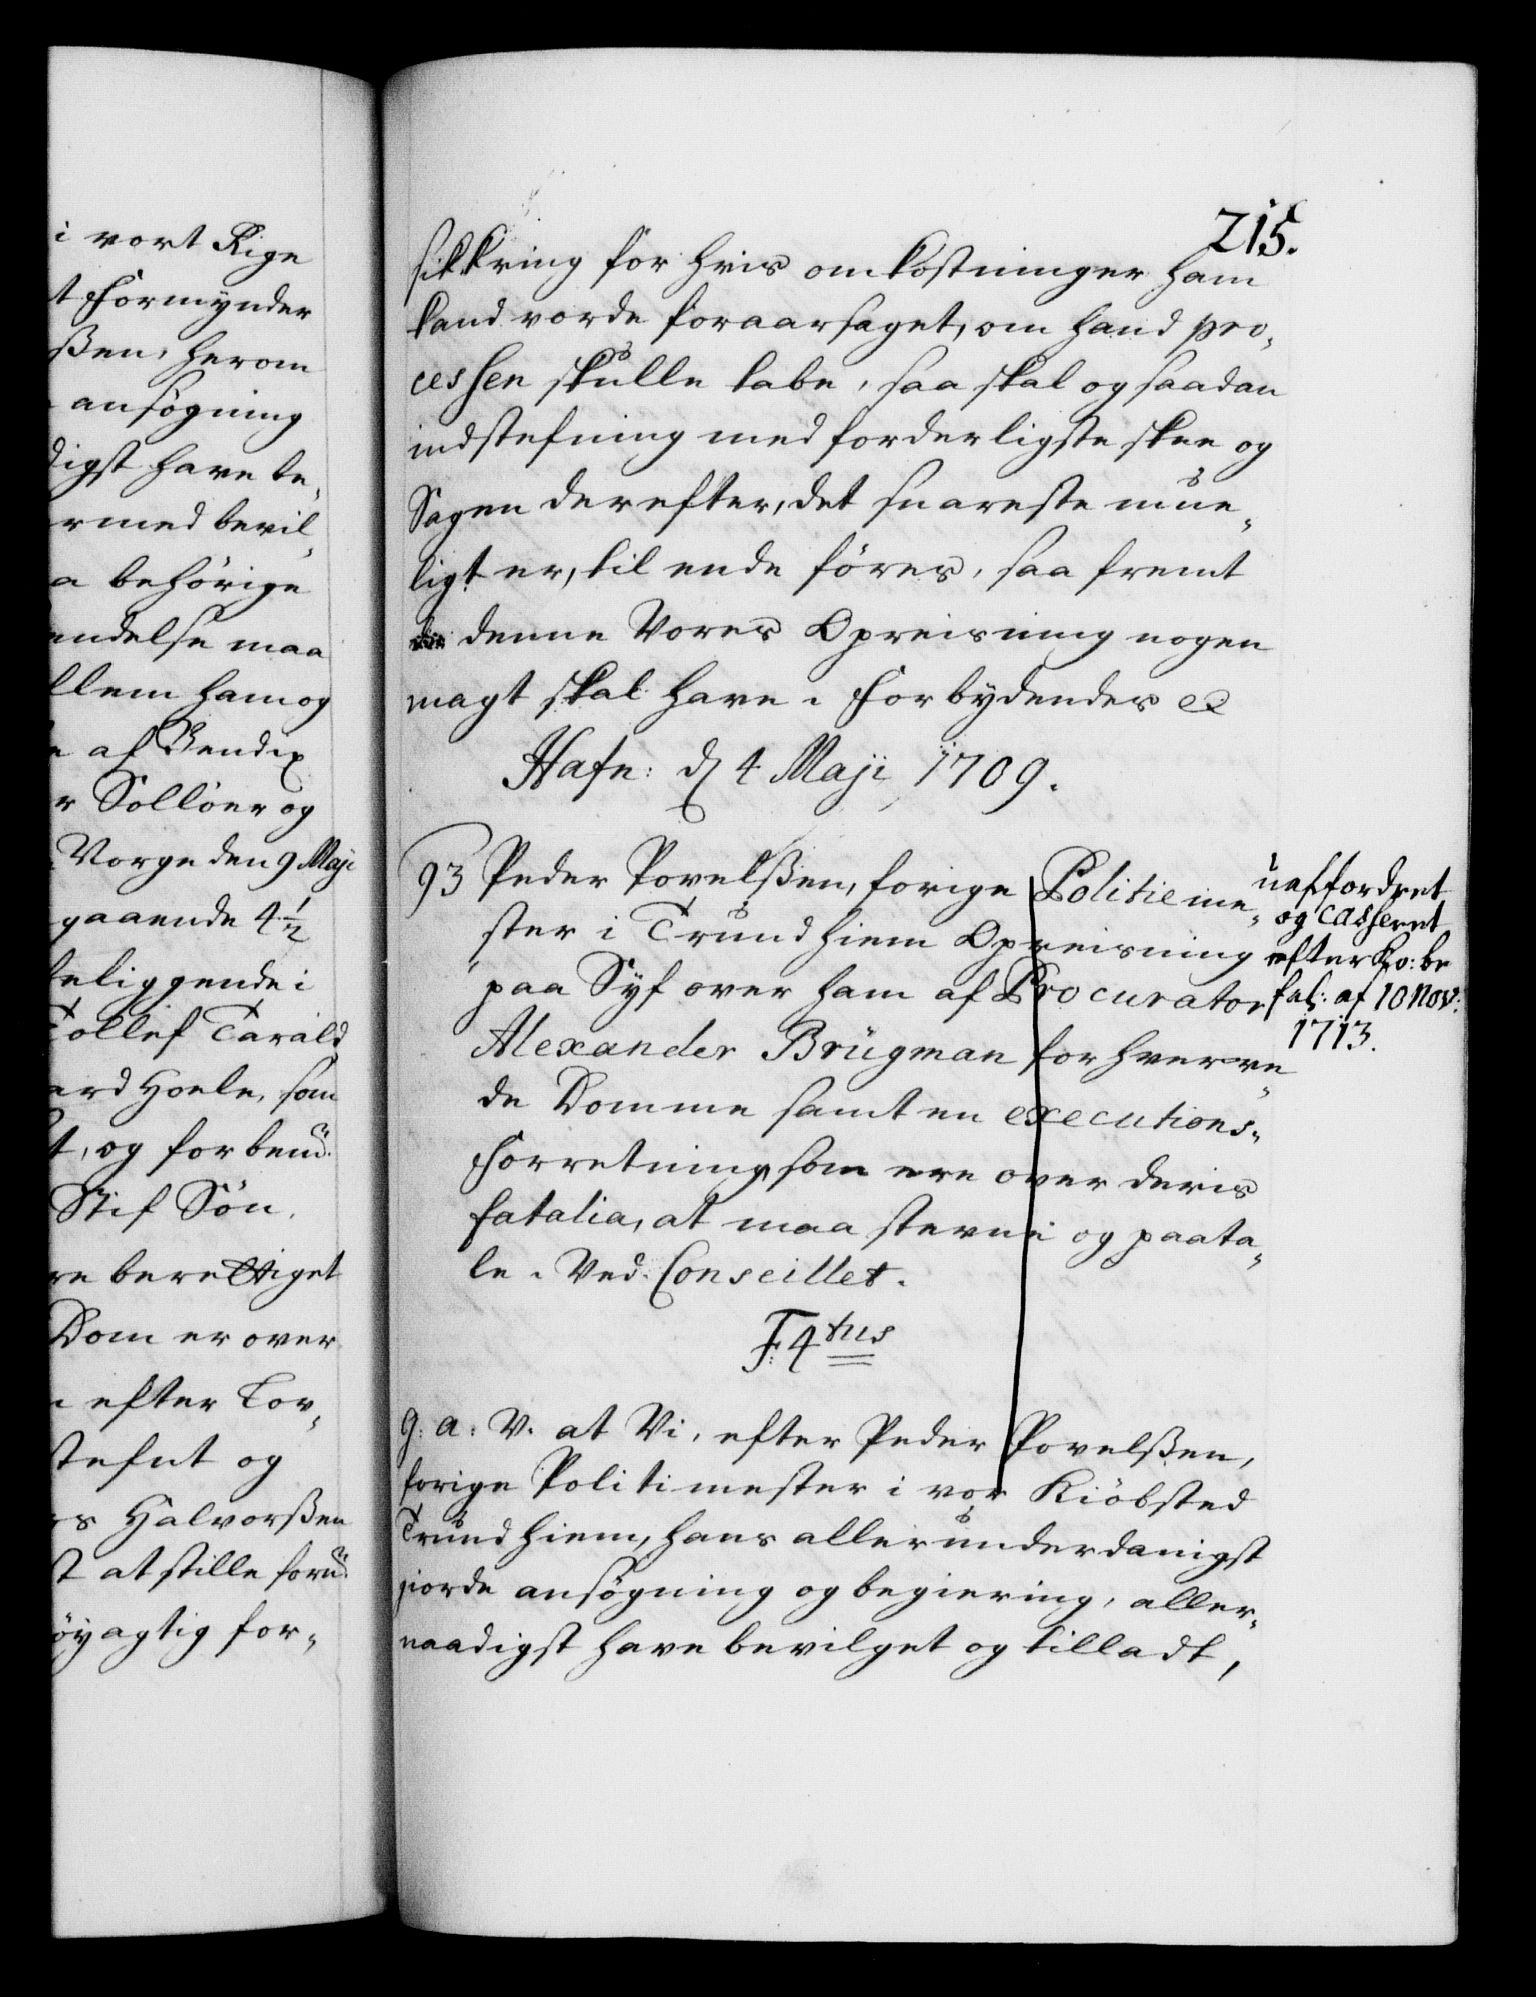 i vort Rige
t Formynder
ßen, herom
ansøgning
digst have be„
rmed bevil„
a behörige
endelse maa
llem ham og
af Bendix
r Sollöer og
Norge den 9 Maji
gaaende 4½
beliggende i
Tollef Tarald
ard Hoele, som
t, og forbem:
Stif Sön.
re berettiget
Dom er over
efter Lov„
stefnt og
rs Halvorßen
t at stille foru:
öyagtig for„
215.
sikkring for hvis omkostninger ham
kand vorde foraarsaget, om hand pro„
cessen skulle tabe, saa skal og saadan
indstefning med forderligste skee og
Sagen derefter, det snareste mue„
ligt er, til ende föres, saa fremt
denne Vores Opreisning nogen
magt skal have. Forbydendes &
Hafn: d 4 Maji 1709.
93 Peder Povelßen, forige Politieme„
ster i Trundhiem Opreisning
paa Syf over ham af Procurator
Alexander Brügman forhverve„
de Domme samt en executions„
Forretning, som ere over deris
fatalia, at maa stevne og paata„
le. Ved Conseillet.
uaffordret
og casseret
efter Ko: be
fal: af 10 Nov:
1713.
F: 4tus
G: a: V. at Vi, efter Peder Povelßen,
forige Politimester i vor Kiöbsted
Trundhiem, hans allerunderdanigst
giorde ansøgning og begiering, aller„
naadigst have bevilget og tilladt,